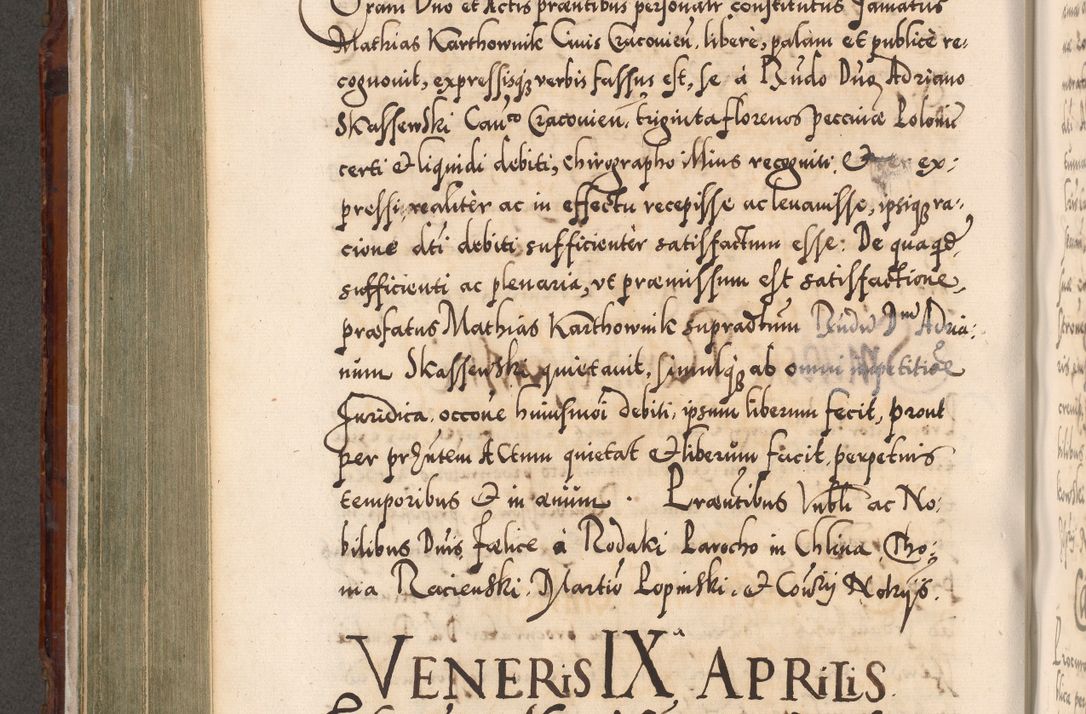 Coram Dno et Actis præntibus personalr constitutus Famatus
Mathias Karthownik Civis Cracovien, liberè, palam et publicè re-
cognovit, expressisq; verbis fassus est, se à Rndo Dno Adriano
Skassewski Canco Cracovien, triginta florenos pecuniæ Poloniæ
certi et liquidi debiti, chirographo illius recogniti, Et ex-
pressi, realitèr ac in effectu recepisse ac levavisse, ipsiq; ra-
cione dti debiti sufficientèr satisfactum esse: De qua qdē
sufficienti ac plenaria, vt præmissum est satisfactione,
præfatus Mathias Karthownik supradtum Rndū Dnū Adria-
num Skassewski quietavit, simulq; ab omni impetitione
Juridica, occone huiusmoi debiti, ipsum liberum fecit, prout
per prūtem Actum quietat et liberum facit, perpetuis
temporibus et in ævum. Præntibus Vnbli ac No-
bilibus Dnis Fælice à Rodaki Parocho in Chlina, Tho-
ma Racienski, Martio Lopinski, et Coñrij Notrijs.
VENERIS IXa APRILIS